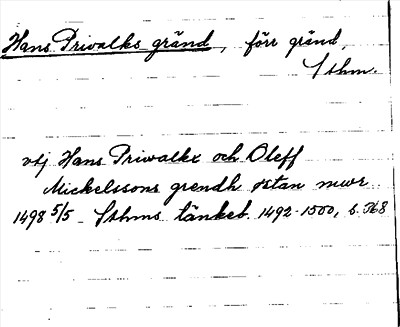 Hans Priwalks gränd, förr gränd,
Sthm.
vtj Hans Priwalkx och Oleff
Mickelssons grendh østan mwr
1498 5/5 - Sthms tänkeb. 1492-1500, s. 368